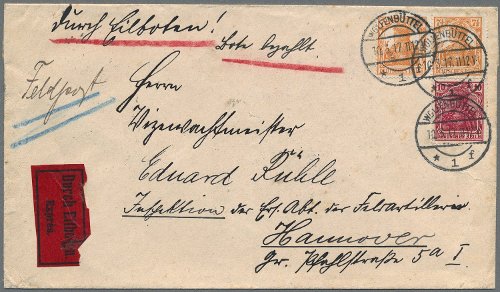 durch Eilboten!
Bote bezahlt.
Feldpost
Herrn
Vizewachtmeister
Eduard Rühle
der Ers. Abt. der Feldartillerie
Hannover
Gr. Pfahlstraße 5a I
Durch Eilboten
Exprès.
WOLFENBÜTTEL
* 1 f
WOLFENBÜTTEL
* 1 f